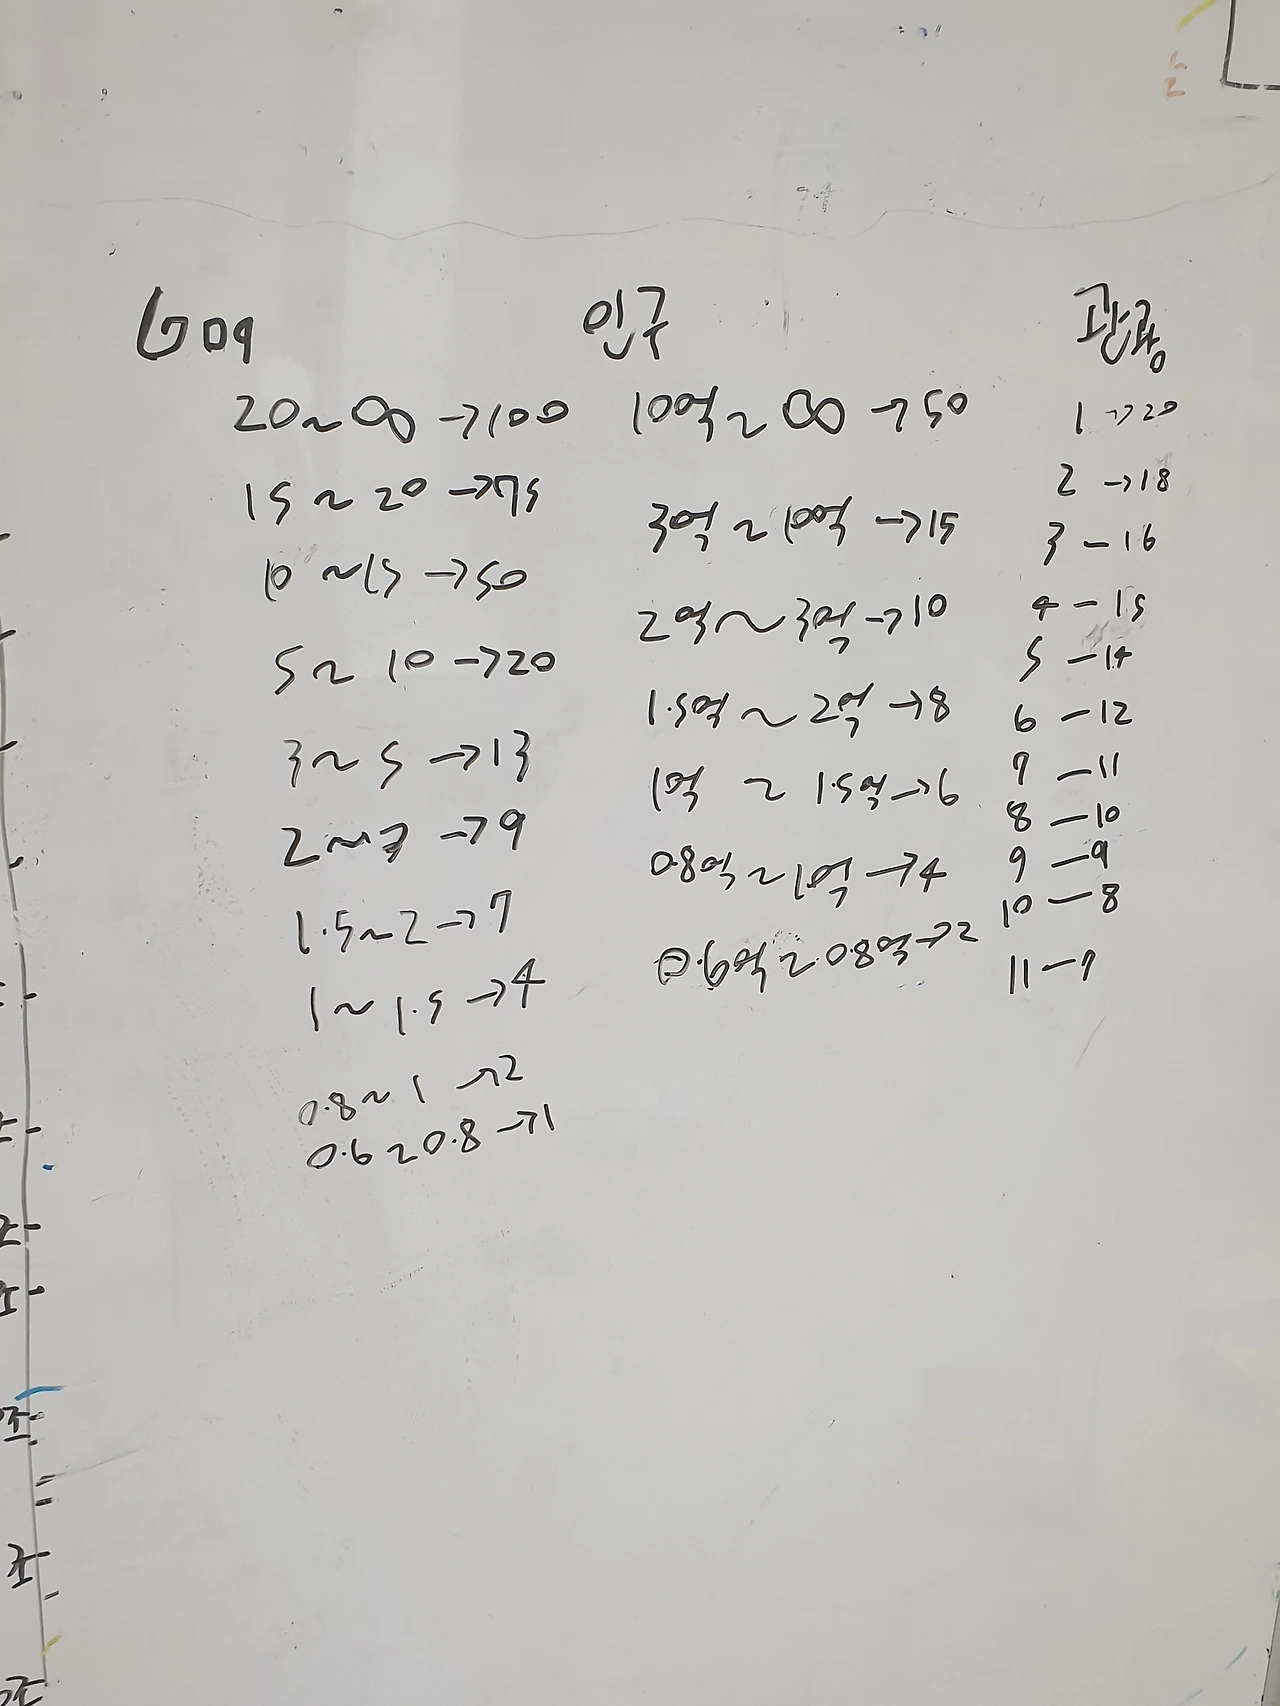 GDP
20~∞ →100
15 ~ 20 →75
10 ~15 →50
5~ 10 →20
3~ 5 →13
2~3 →9
1.5~2→7
1~ 1.5 →4
0.8~ 1 →2
0.6~0.8 →1
인구
10억~ ∞ →50
3억~10억 →15
2억~3억→10
1.5억~ 2억 →8
1억 ~ 1.5억→6
0.8억~1억 →4
0.6억~0.8억→2
관광
1 →20
2 →18
3 - 16
4 - 15
5 - 14
6 - 12
7 - 11
8 - 10
9 - 9
10 - 8
11 - 7